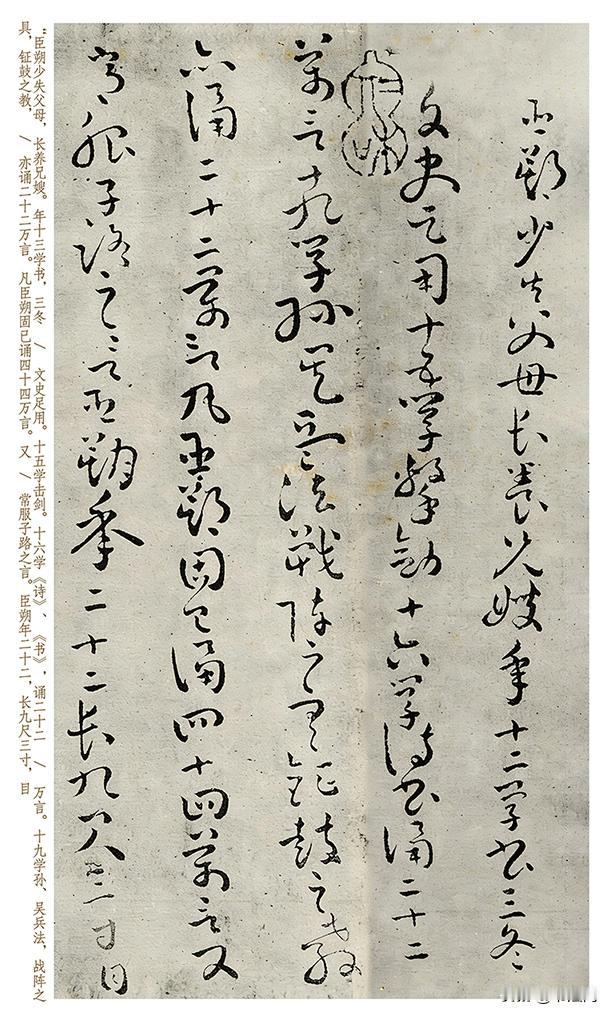 臣朔少失父母長養兄嫂年十二學書三冬
文史足用十五學擊劍十六學詩書誦二十二
萬言十九學孫吳兵法戰陣之具鉦鼓之教
亦誦二十二萬言凡臣朔固已誦四十四萬言又
常服子路之言臣朔年二十二長九尺三寸目
“臣朔少失父母，长养兄嫂。年十三学书，三冬 \ 文史足用。十五学击剑。十六学《诗》、《书》，诵二十二 \ 万言。十九学孙、吴兵法，战阵之
具，钲鼓之教， \ 亦诵二十二万言。凡臣朔固已诵四十四万言。又 \ 常服子路之言。臣朔年二十二，长九尺三寸，目